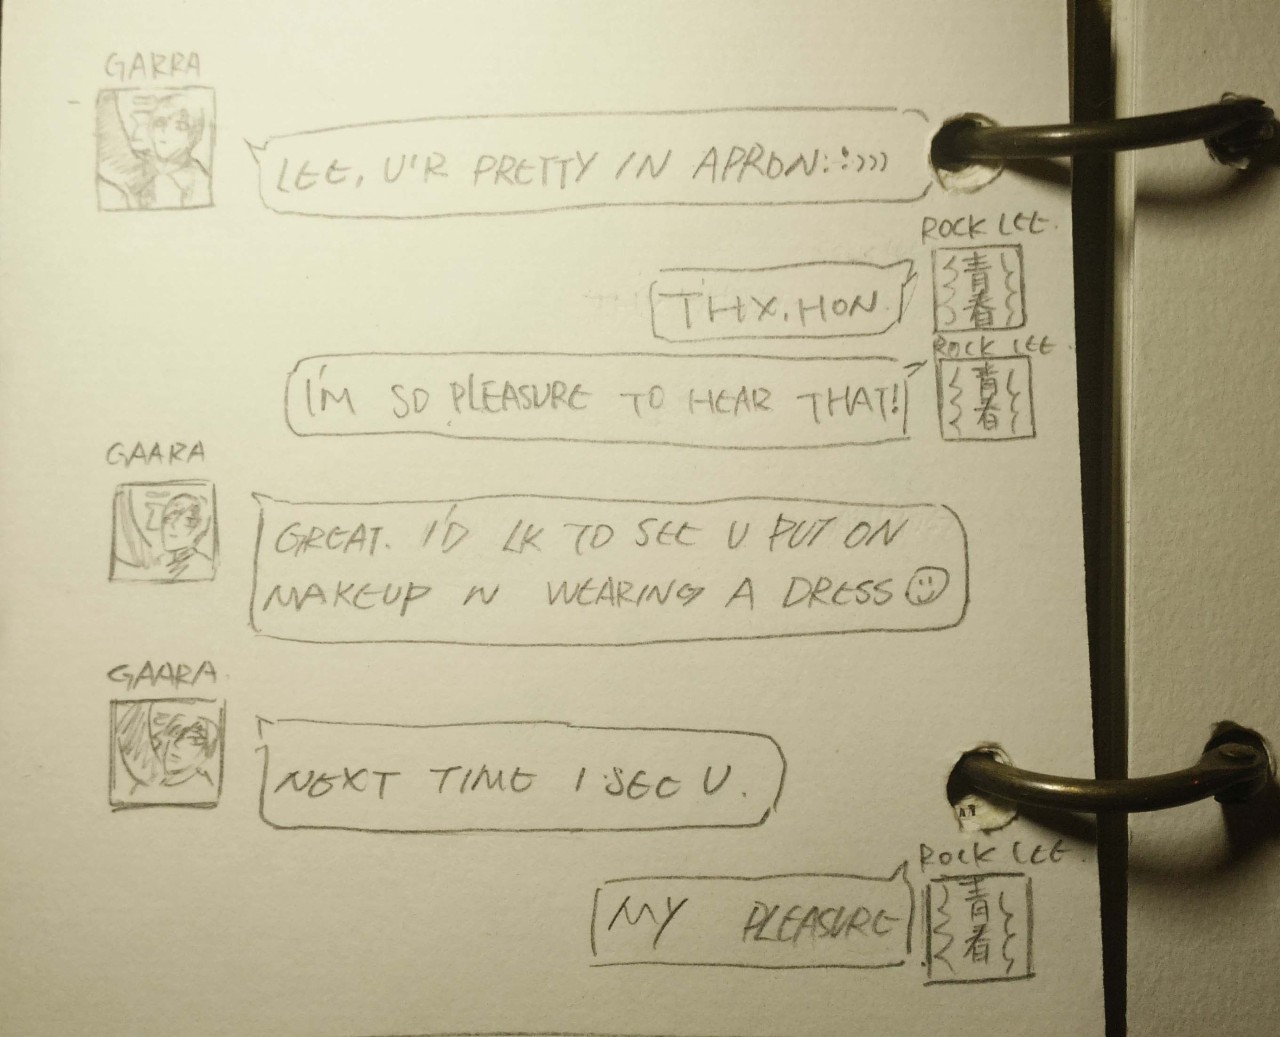 GARRA
LEE, U'R PRETTY IN APRON::)))
ROCK LEE.
青春
THX, HON
ROCK LEE
青春
I'M SO PLEASURE TO HEAR THAT!
GAARA
GREAT. I'D LK TO SEE U PUT ON
MAKEUP N WEARING A DRESS ☺
GAARA
NEXT TIME I SEE U.
ROCK LEE
青春
MY PLEASURE